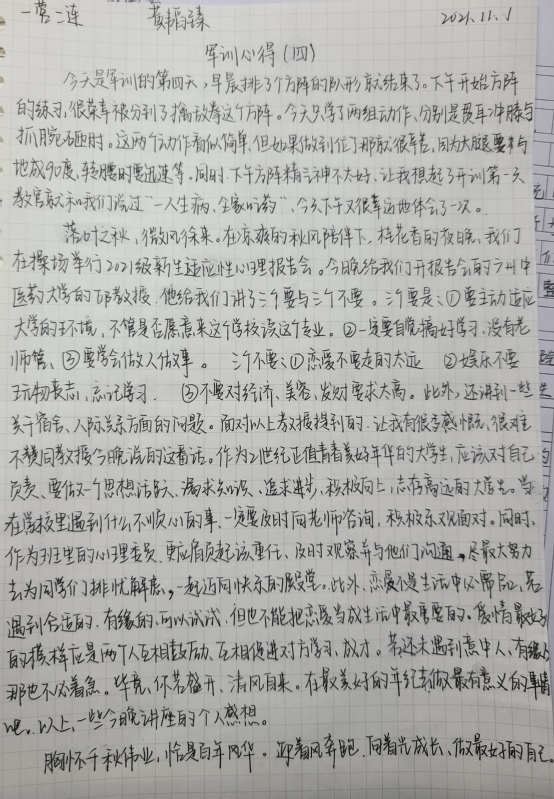 一营二连 黄韬臻 2021.11.1
军训心得(四)
今天是军训的第四天,早晨排了个方阵的队形就结束了。下午开始方阵
的练习,很荣幸被分到了擒敌拳这个方阵。今天只学了两组动作,分别是贯耳冲膝与
抓腕砸肘。这两个动作看似简单,但如果做到位了那就很辛苦,因为大腿要求与
地成90度,转腰时要迅速等。同时,下午方阵精气神不太好,让我想起了开训第一天
教官就和我们说过“一人生病,全家吃药”,今天下午又很幸运地体会了一次。
落叶之秋,微风徐来。在凉爽的秋风陪伴下,桂花香的夜晚,我们
在操场举行2021级新生适应性心理报告会。今晚给我们开报告会的广州中
医药大学的邱教授,他给我们讲了三个要与三个不要。三个要是:①要主动适应
大学的环境,不管是否愿意来这个学校读这个专业。②一定要自觉搞好学习,没有老
师管、③要学会做人做事。 三个不要:①恋爱不要走的太远 ②娱乐不要
玩物丧志,忘记学习. ③不要对经济、美容、发财要求太高。此外,还讲到一些
关于宿舍、人际关系方面的问题。面对以上教授提到的,让我有很多感慨,很难
不赞同教授今晚说的这番话。作为21世纪正值青春美好年华的大学生,应该对自己
负责、要做一个思想活跃、渴求知识、追求进步,积极向上,志存高远的大学生。当
在学校里遇到什么不顺心的事,一定要及时向老师咨询,积极乐观面对。同时,
作为班里的心理委员,更应肩负起该重任、及时观察并与他们沟通,尽最大努力
去为同学们排忧解虑,一起迈向快乐的殿堂。此外,恋爱不是生活中必需品,若
遇到合适的,有缘的,可以试试,但也不能把恋爱当成生活中最重要的。爱情最好
的模样应是两个人互相鼓励、互相促进对方学习、成才。若还未遇到意中人、有缘人
那也不必着急。毕竟,你若盛开、清风自来。在最美好的年纪去做最有意义的事情
吧。以上,一些今晚讲座的个人感想。
胸怀千秋伟业,恰是百年风华。迎着风奔跑,向着光成长、做最好的自己。